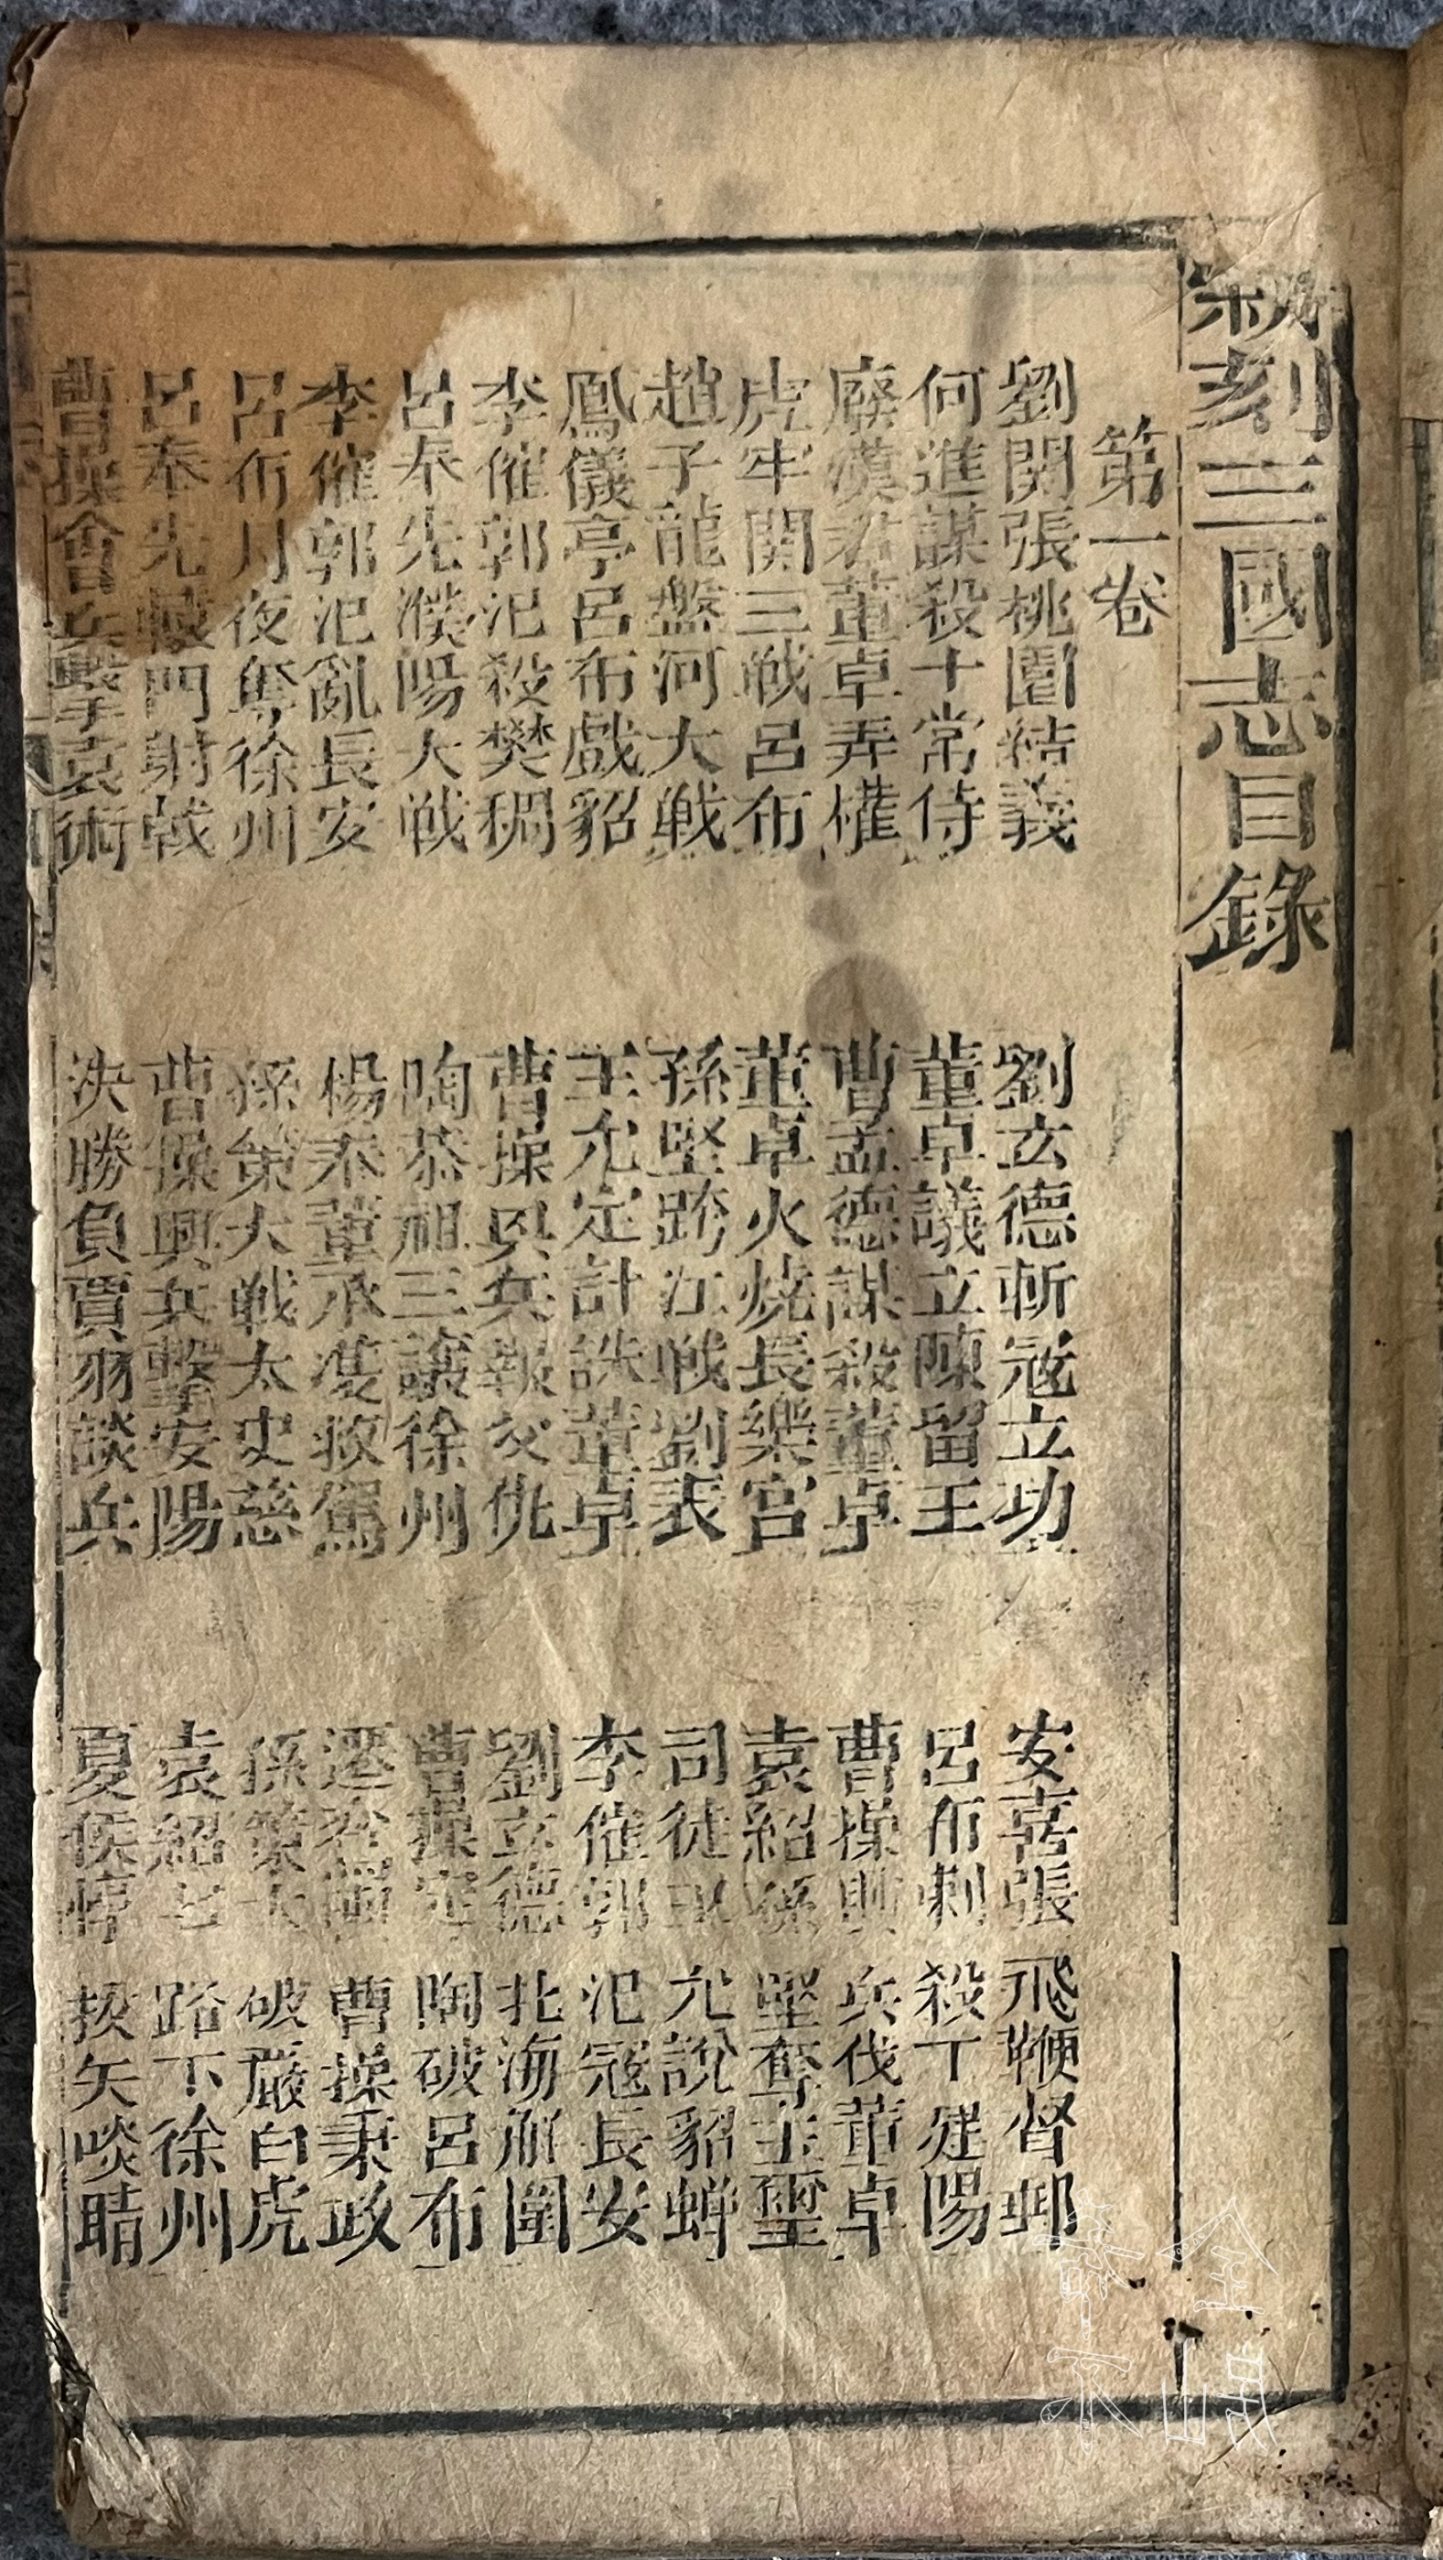 新刻三國志目錄
第一卷
劉関張桃園結義　劉玄德斬冦立功　安喜張飛鞭督郵
何進謀殺十常侍　董卓議立陳留王　呂布刺殺丁建陽
廢漢君董卓弄權　曹孟德謀殺董卓　曹操興兵伐董卓
虎牢関三戦呂布　董卓火燒長樂宮　袁紹孫堅奪玉璽
趙子龍盤河大戦　孫堅跨江戦劉表　司徒王允說貂蟬
鳳儀亭呂布戲貂　王允定計誅董卓　李傕郭汜冦長安
李傕郭汜殺樊稠　曹操興兵報父仇　劉玄德北海解圍
呂奉先濮陽大戦　陶恭祖三讓徐州　曹操定陶破呂布
李傕郭汜亂長安　楊奉董承双救駕　遷鑾輿曹操秉政
呂布月夜奪徐州　孫策大戦太史慈　孫策大破嚴白虎
呂奉先轅門射戟　曹操興兵擊安陽　袁紹七路下徐州
曹操會兵擊袁術　決勝負賈詡談兵　夏侯惇拔矢啖睛